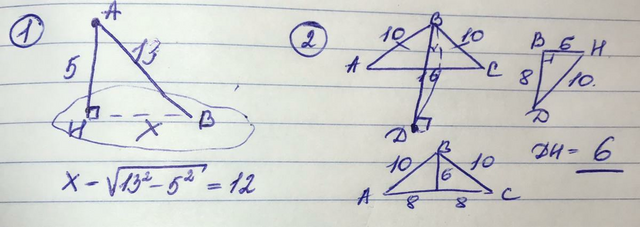 1
A
5
13
H
X
B
X = √13² - 5² = 12
2
B
10
10
A
16
C
D
B
6
H
8
10.
D
B
10
10
6
A
8
8
C
DH = 6